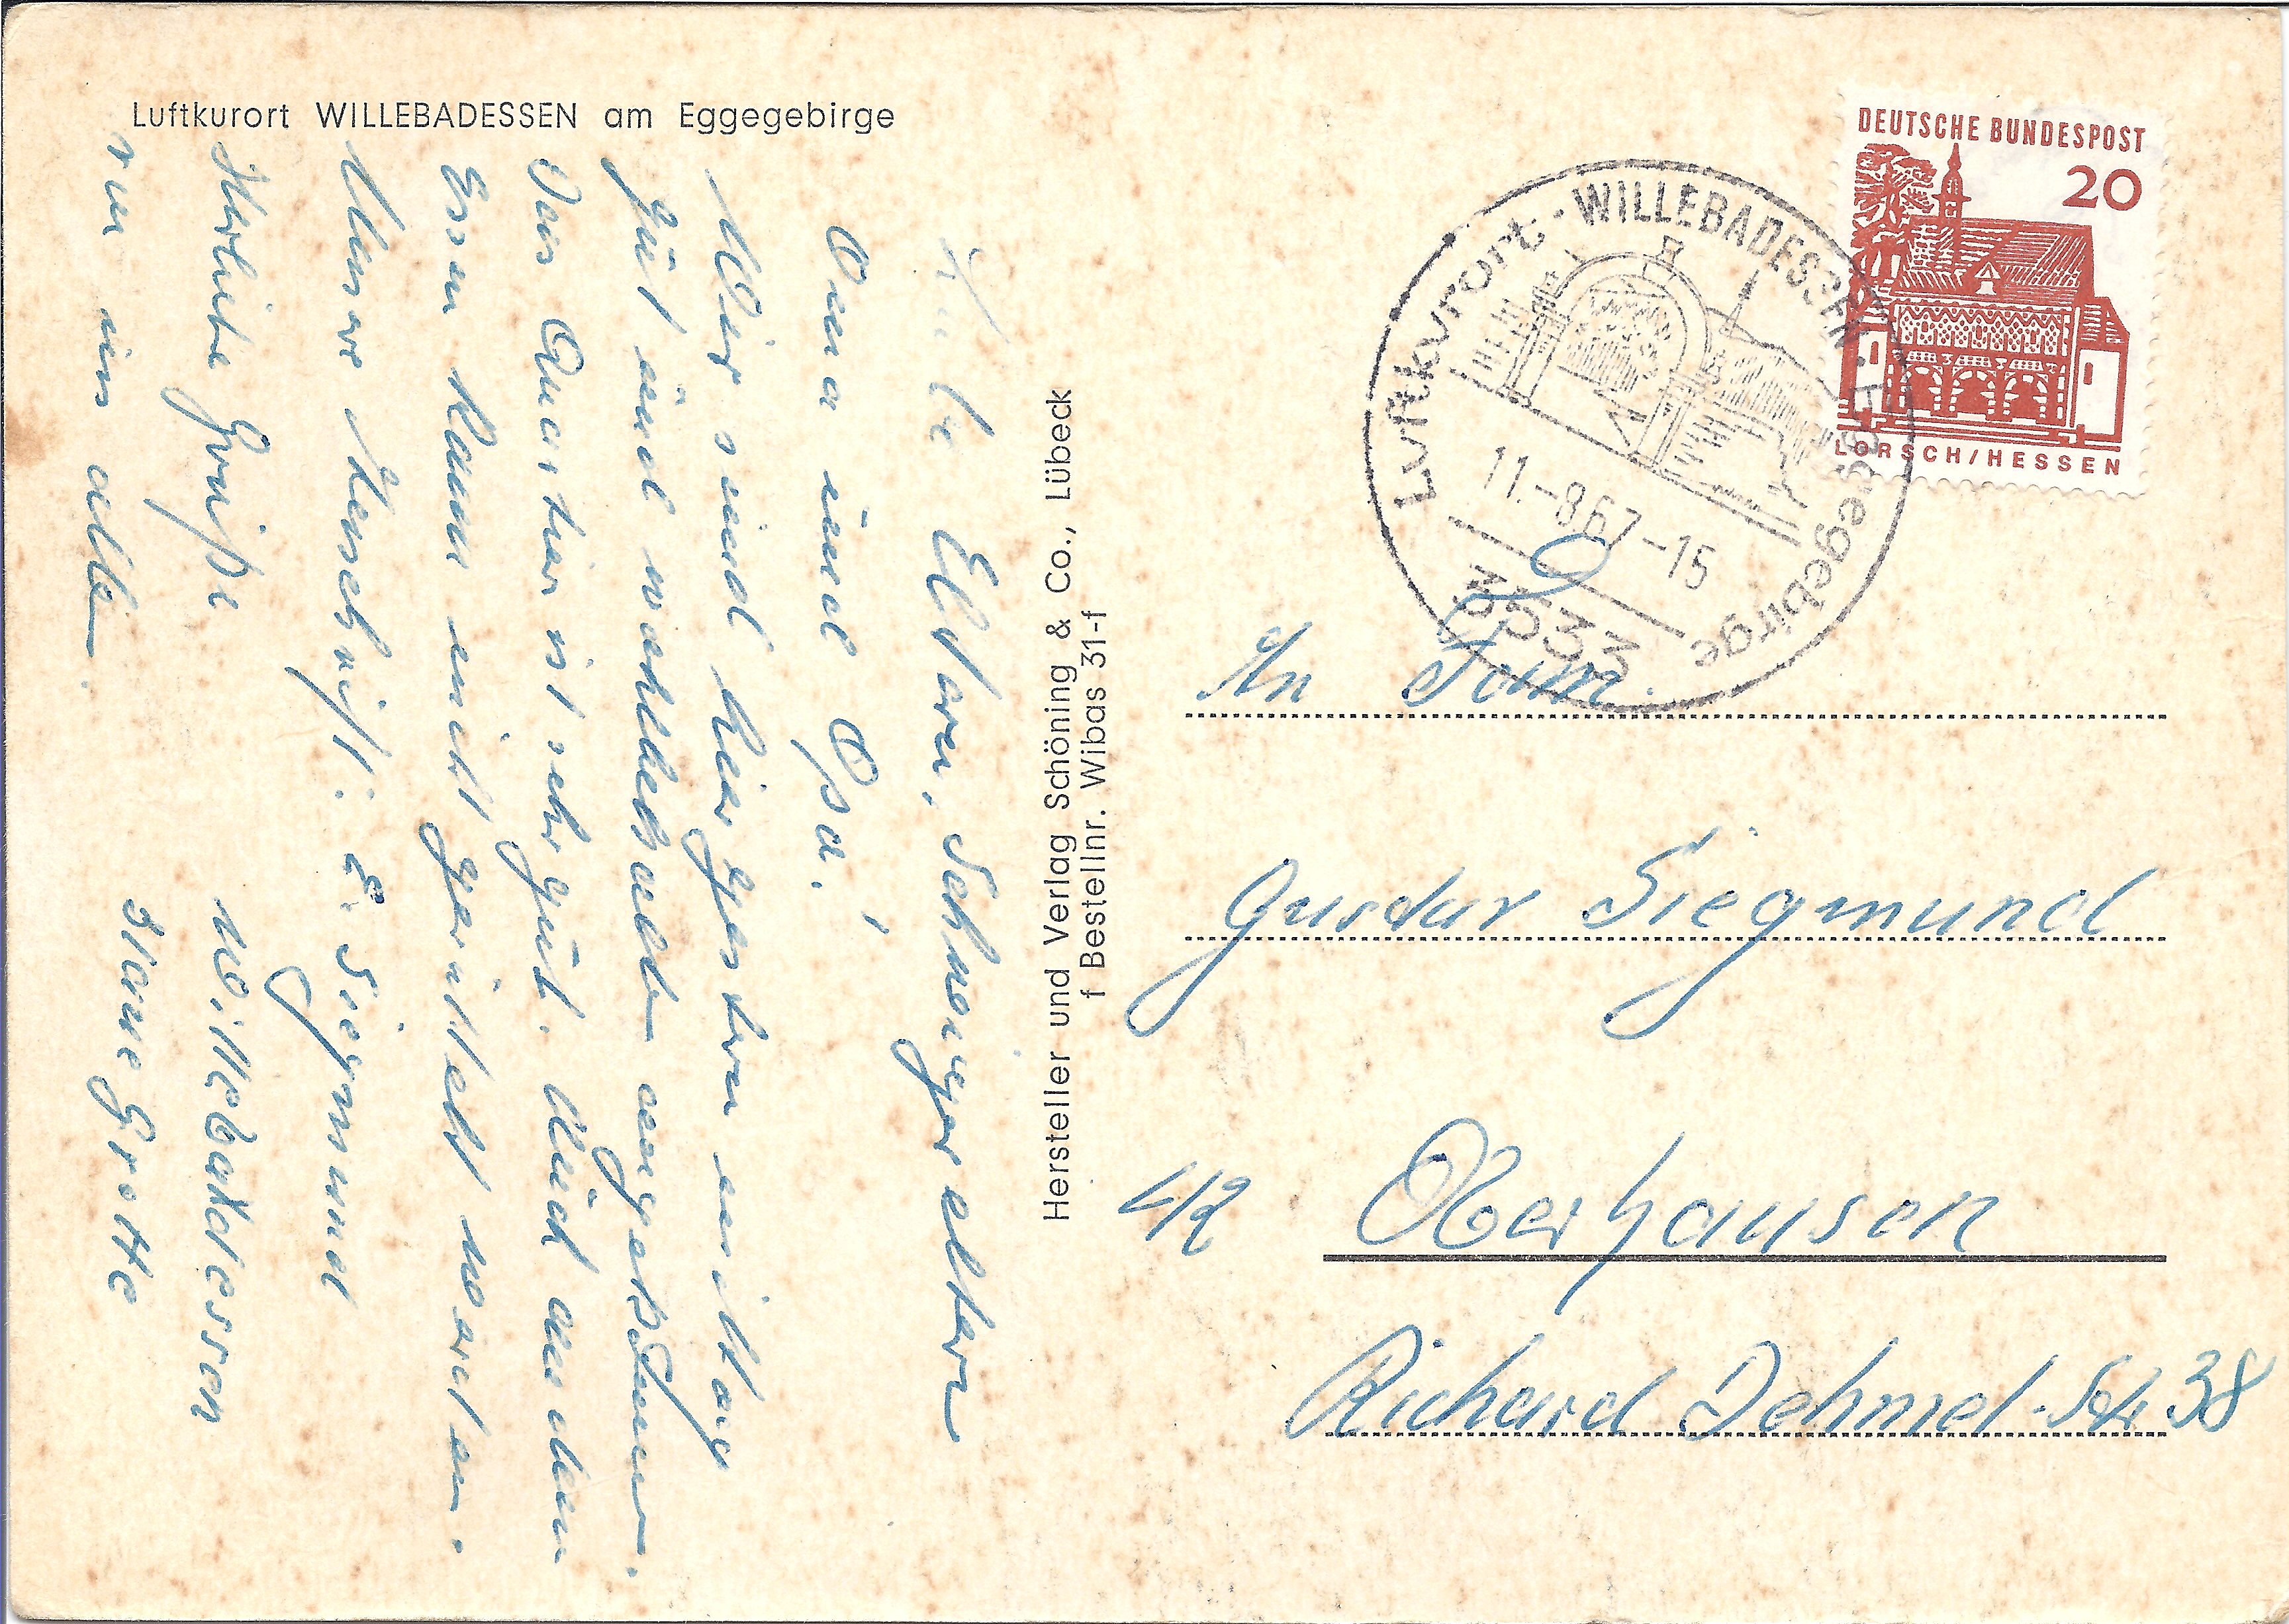 Luftkurort WILLEBADESSEN am Eggegebirge
Liebe Eltern, Schwiegereltern
Oma und Opa!
Wir sind hier gestern mittag
gut und wohlbehalten angekommen.
Das Quartier ist sehr gut. Auch an dem
Essen kann nicht gerüttelt werden.
Unsere Anschrift: E. Siegmund
Willebadessen
Herzliche Grüße
von uns allen.
Hersteller und Verlag Schöning & Co., Lübeck
f Bestellnr. Wibas 31-f
DEUTSCHE BUNDESPOST
20
LORSCH/HESSEN
Luftkurort · WILLEBADESSEN · Eggegebirge
11.-8.67-15
3533
An Fam.
Gustav Siegmund
42 Oberhausen
Richard Dehmel-Str 38